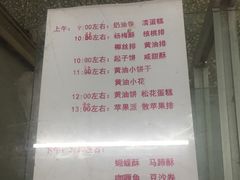 上午：9:00左右：奶油卷 清蛋糕
10:00左右：杨梅酥 核桃排
椰丝排 黄油排
10:30左右：起子饼 咸甜酥
11:00左右：黄油小饼干
黄油小花
12:00左右：黄油饼 松花蛋糕
13:00左右：苹果派 散苹果排
下午
蝴蝶酥 马蹄酥
咖喱角 豆沙卷